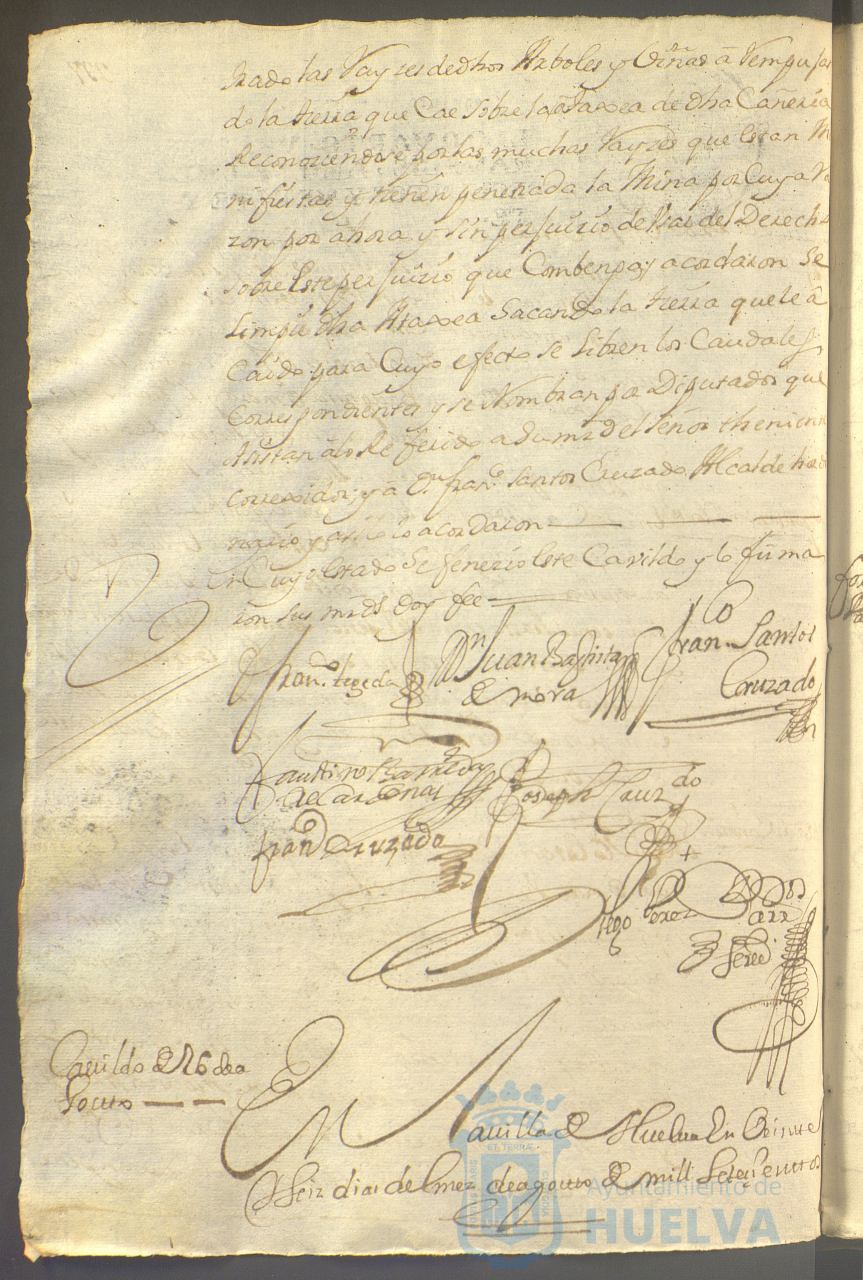 trado las Rayzes de dhos Arboles y Viñas a Rempujar
do la tierra que Cae sobre la Ataxea de dha Cañeria
Reconociendose por las muchas Rayzes que estan
nifiestas y tienen penetrada la Mina por Cuya Ra
zon por ahora y sin perjuizio de Usar del Derecho
sobre este perjuizio que Combenga; acordaron Se
Limpie dha Ataxea Sacando la tierra que le a
Caido para Cuyo efecto se Libren los Caudales
Correspondientes y se Nombran por Diputados que
Asistan a lo Referido a su md del Señor theniente
Correxidor, y a Dn Franco Santos Cruzado Alcalde hordi
nario y assi lo acordaron
En Cuyo estado Se fenezio este Cavildo y lo firma
ron sus mrds Doy fee
Franco tegeda
Dn Juan Baptista
de mora
Franco Santos
Cruzado
Faustino Barreda
de Cardenas
Joseph Cruzdo
franco Cruzado
Diego Perez
Cavildo de 26 de a
gosto
En la villa de Huelva En Veinte
y Seiz dias del mez de agosto de mill Setezientos
Ayuntamiento de
HUELVA